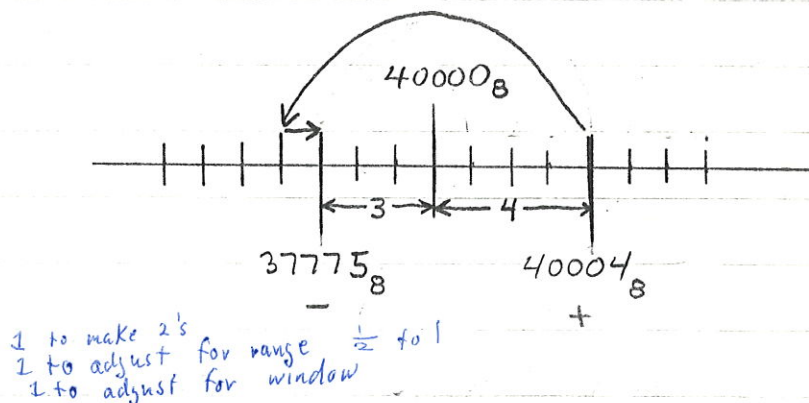 40000₈
3 4
37775₈ 40004₈
− +
1 to make 2's
1 to adjust for range 1/2 to 1
1 to adjust for window